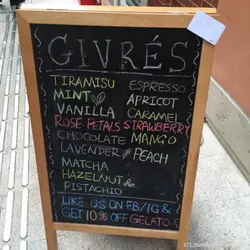 GIVRÉS
TIRAMISU ESPRESSO
MINT APRICOT
VANILLA CARAMEL
ROSE PETALS STRAWBERRY
CHOCOLATE MANGO
LAVENDER PEACH
MATCHA
HAZELNUT
PISTACHIO
LIKE US ON FB/IG &
GET 10% OFF GELATO